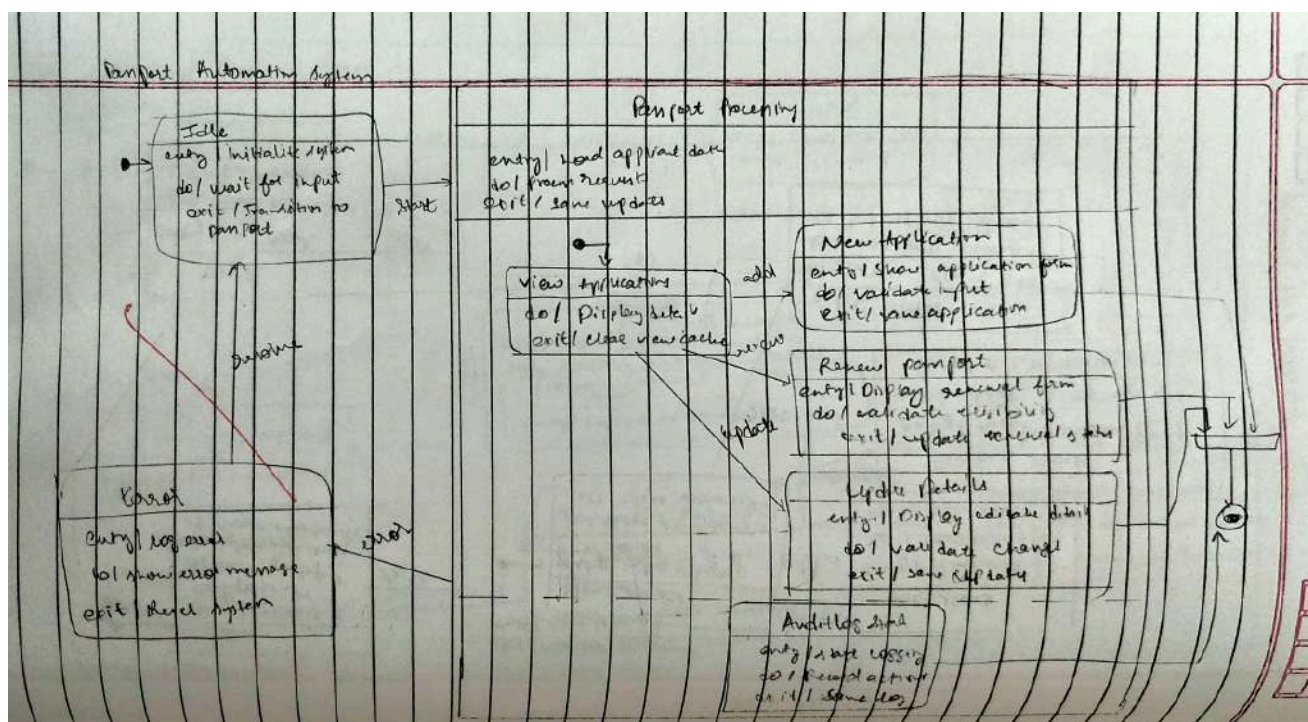 Passport Automation System
Idle
entry / Initialize system
do / wait for input
exit / Transition to
passport
start
Passport Processing
entry / Load applicant data
do / Process request
exit / save updates
View Applications
do / Display details
exit / clear view cache
add
renew
update
New Application
entry / show application form
do / validate input
exit / save application
Renew passport
entry / Display renewal form
do / validate eligibility
exit / update renewal status
Update Details
entry / Display editable details
do / validate changes
exit / save updates
AuditLog
entry / start logging
do / Record actions
exit / save log
resume
Error
entry / log error
do / show error message
exit / Reset system
error